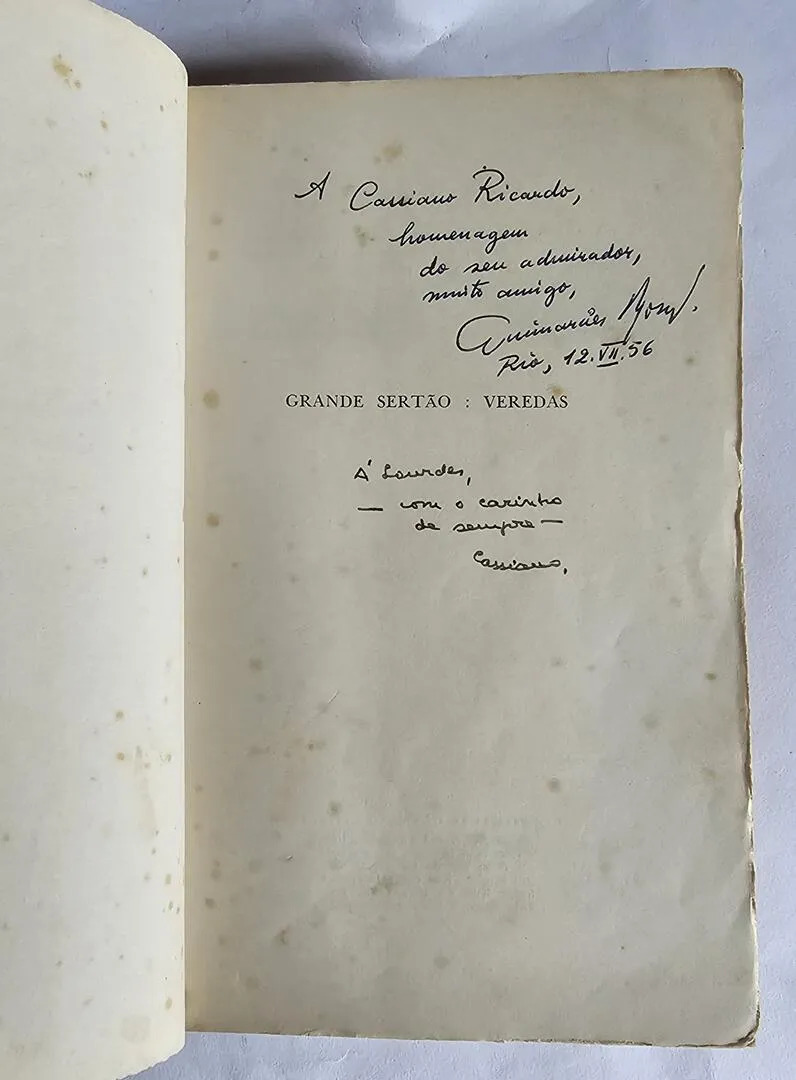 A Cassiano Ricardo,
homenagem
do seu admirador,
muito amigo,
Guimarães Rosa.
Rio, 12.VII.56
GRANDE SERTÃO : VEREDAS
À Lourdes,
— com o carinho
de sempre —
Cassiano,